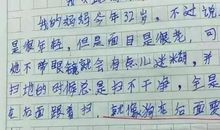 我的妈妈今年32岁，不过说
是很年轻，但是面目是很老，可
她不带眼镜就会有点儿迷糊，并
扫地的时候总是扫不干净，至
在后面跟着扫，就像狗在后面要